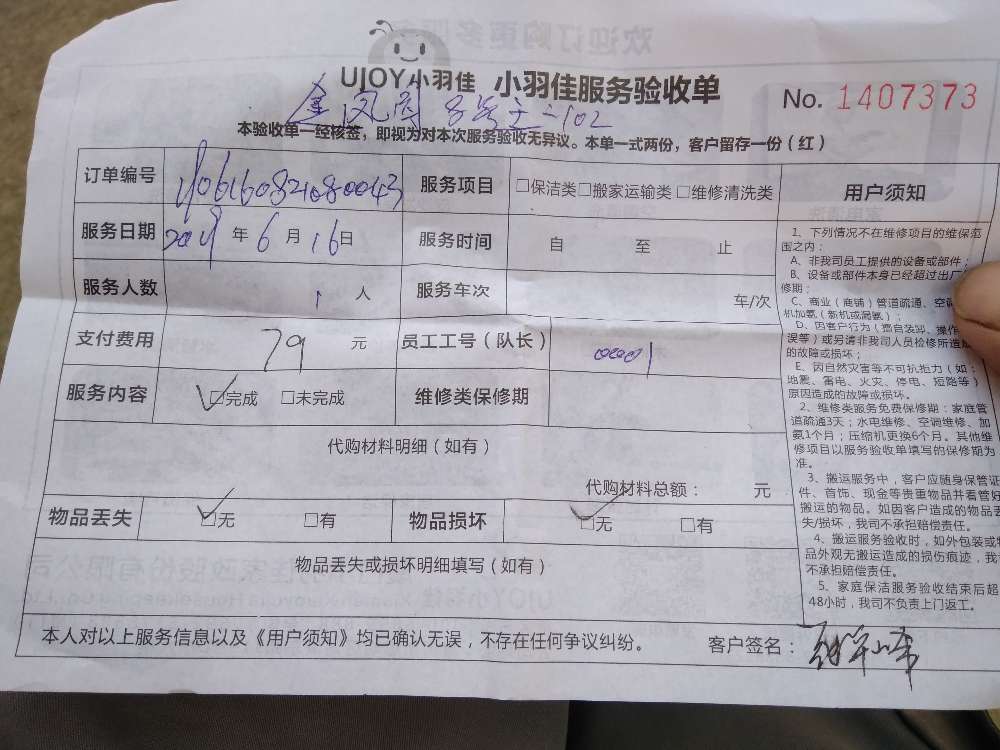 UJOY小羽佳 小羽佳服务验收单
No. 1407373
本验收单一经核签，即视为对本次服务验收无异议。本单一式两份，客户留存一份（红）
订单编号
服务项目 □保洁类□搬家运输类□维修清洗类
服务日期 年 6 月 16日
服务时间 自 至 止
服务人数 1 人
服务车次 车/次
支付费用 79 元
员工工号（队长） 00001
服务内容 □完成 □未完成
维修类保修期
代购材料明细（如有）
代购材料总额： 元
物品丢失 □无 □有
物品损坏 □无 □有
物品丢失或损坏明细填写（如有）
本人对以上服务信息以及《用户须知》均已确认无误，不存在任何争议纠纷。
客户签名：
用户须知
1、下列情况不在维修项目的维保范
围之内：
A、非我司员工提供的设备或部件；
B、设备或部件本身已经超过出厂
修期；
C、商业（商铺）管道疏通、空
机加氨（新机或漏氨）；
D、因客户行为（擅自装卸、操作
误等）或另请非我司人员检修所造成
的故障或损坏；
E、因自然灾害等不可抗拒力（如：
地震、雷电、火灾、停电、短路等）
原因造成的故障或损坏。
2、维修类服务免费保修期：家庭管
道疏通3天；水电维修、空调维修、加
氨1个月；压缩机更换6个月。其他维
修项目以服务验收单填写的保修期为
准。
3、搬运服务中，客户应随身保管证
件、首饰、现金等贵重物品并看管好
搬运的物品。如因客户造成的物品丢
失/损坏，我司不承担赔偿责任。
4、搬运服务验收时，如外包装或物
品外观无搬运造成的损伤痕迹，我
不承担赔偿责任。
5、家庭保洁服务验收结束后超
48小时，我司不负责上门返工。